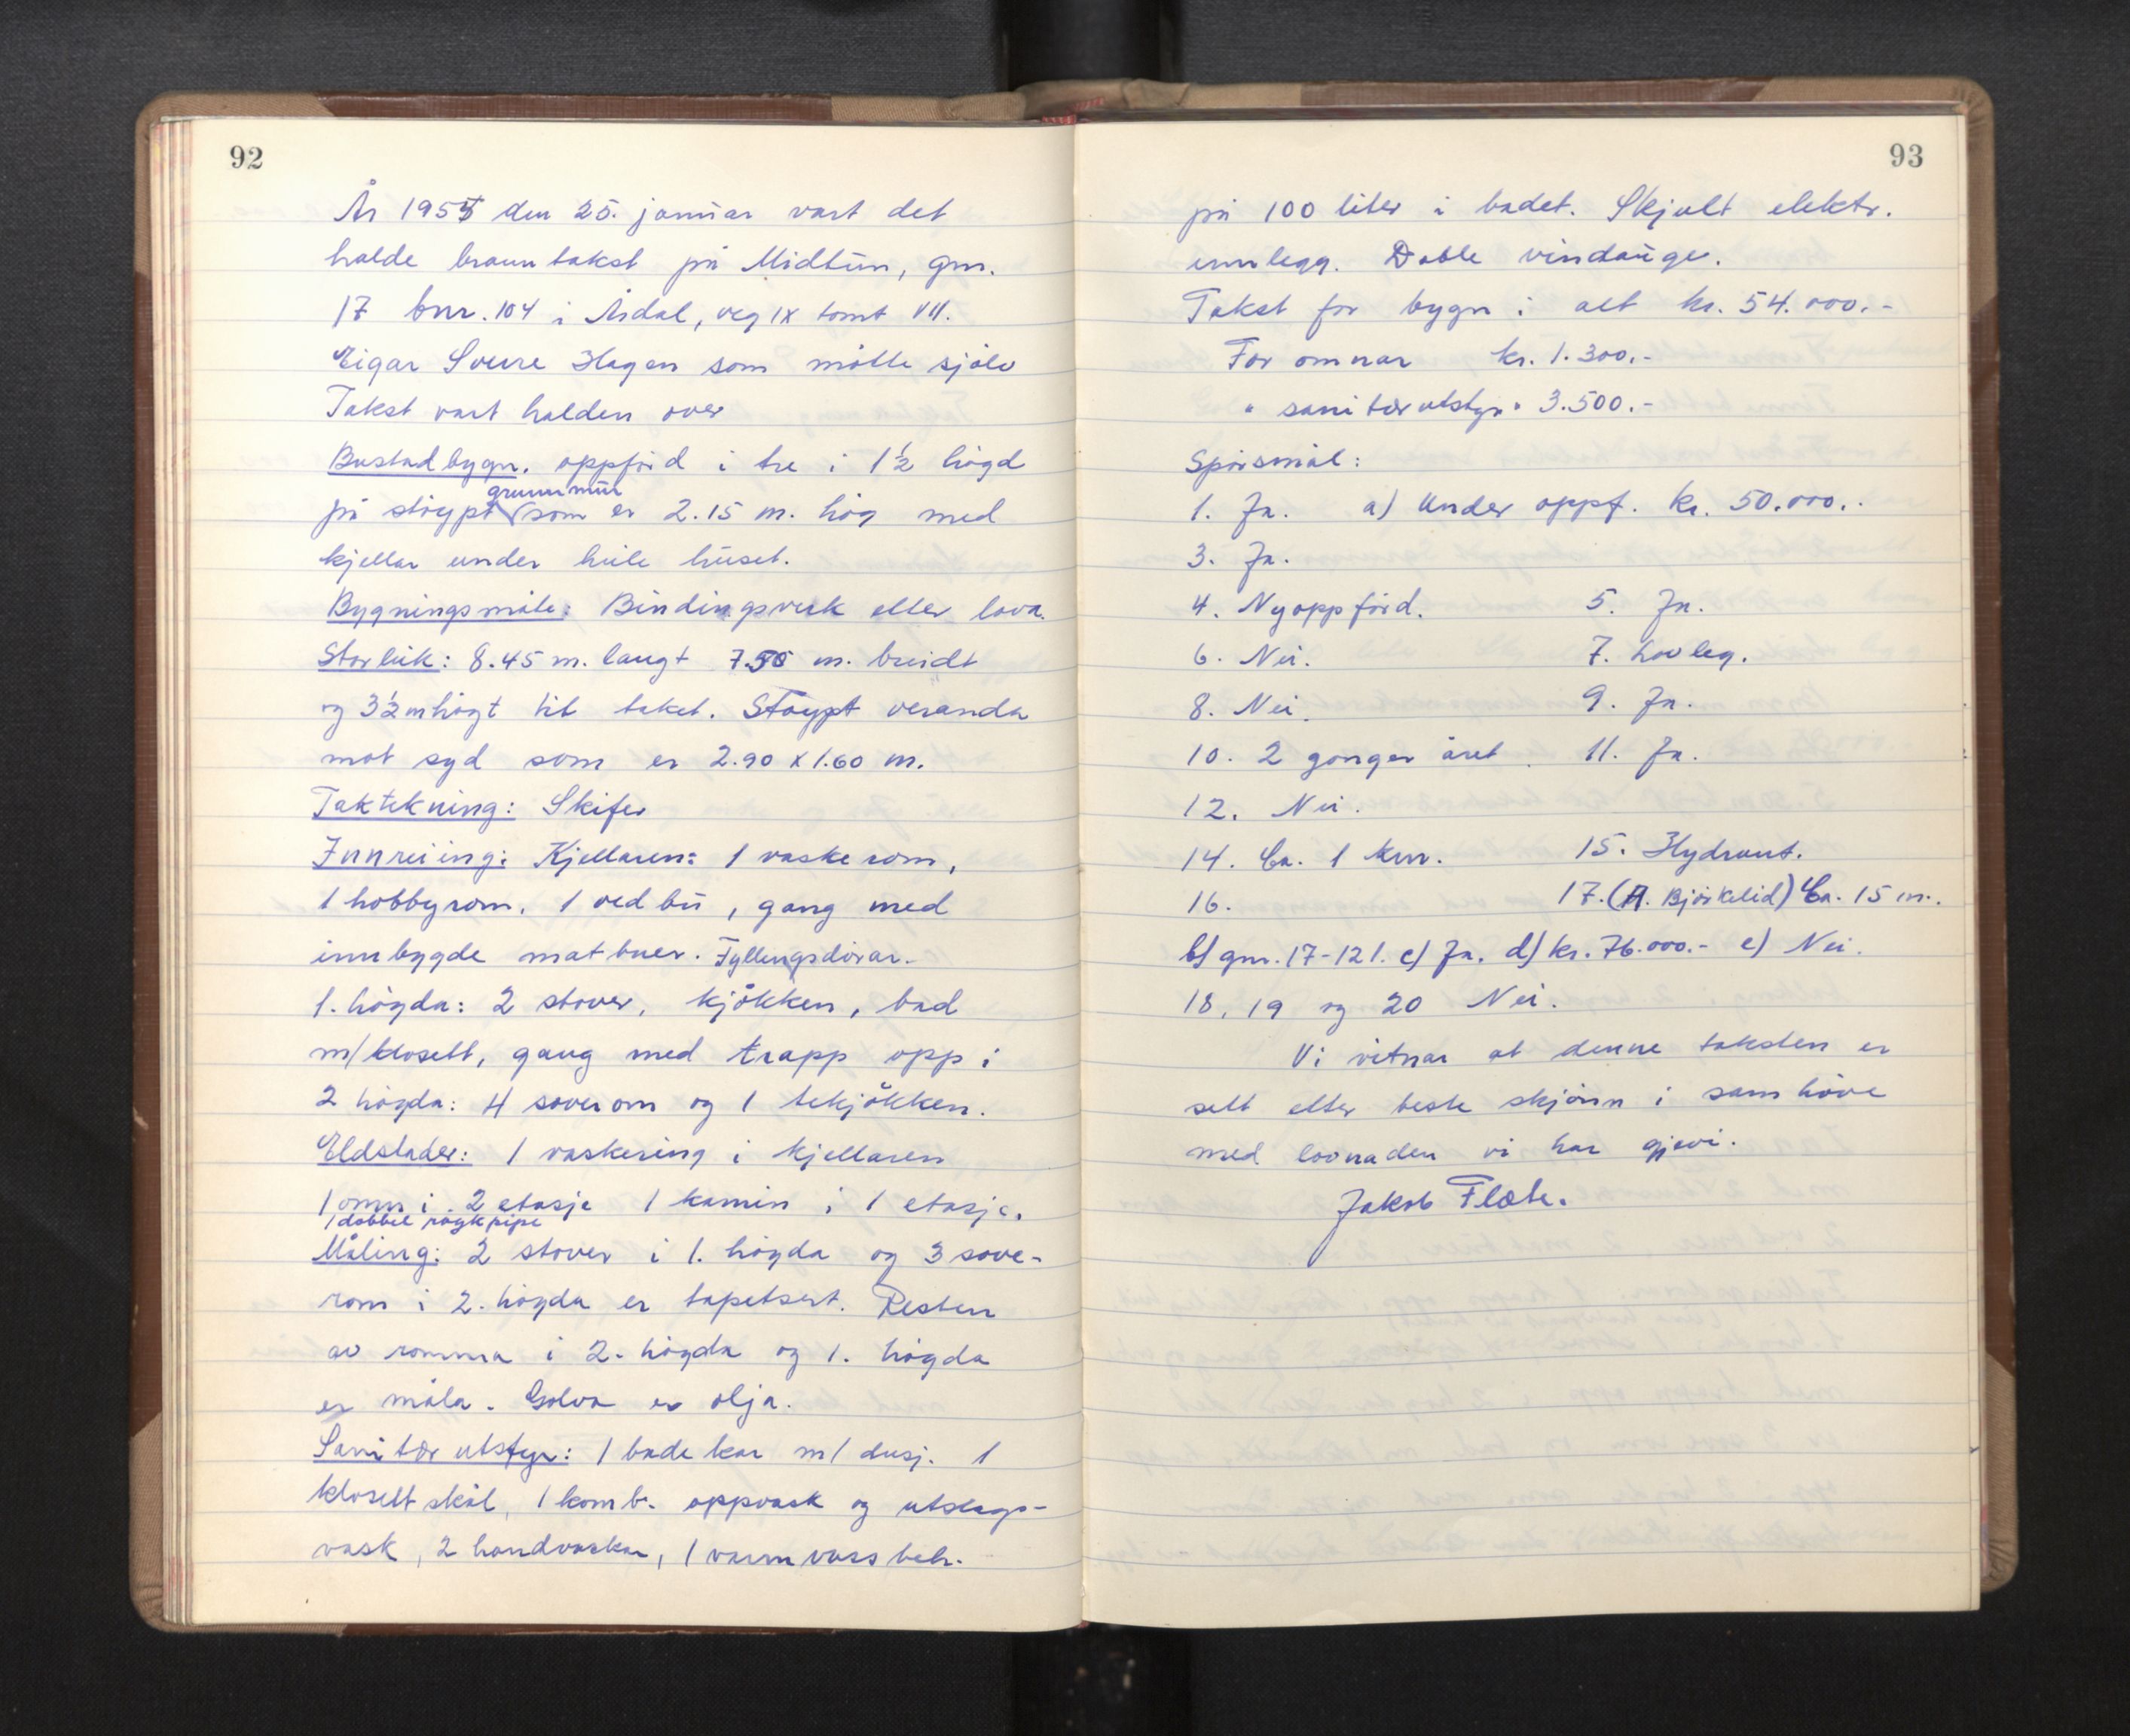 92
År 1955 den 25. januar vart det
halde branntakst på Midtun, gnr.
17 bnr. 104 i Årdal, veg IX tomt VII.
Eigar Sverre Hagen som møtte sjølv
Takst vart halden over
Bustadbygn. oppførd i tre i 1 1/2 høgd
grunnmur
på støypt som er 2.15 m. høg med
kjellar under heile huset.
Bygningsmåte: Bindingsverk etter lova.
Storleik: 8.45 m. langt 7.50 m. breidt
og 3 1/2 m høgt til taket. Støypt veranda
mot syd som er 2.90 x 1.60 m.
Taktekning: Skifer
Innreiing: Kjellaren: 1 vaskerom,
1 hobbyrom, 1 vedbu, gang med
innbygde matbuer. Fyllingsdørar.
1. høgda: 2 stover, kjøkken, bad
m/klosett, gang med trapp opp i
2 høgda: 4 soverom og 1 tekjøkken.
Eldstader: 1 vaskering i kjellaren
1 omn i 2 etasje 1 kamin i 1 etasje.
1 dobbel røykpipe
Måling: 2 stover i 1. høgda og 3 sove-
rom i 2. høgda er tapetsert. Resten
av romma i 2. høgda og 1. høgda
er måla. Golva er olja.
Sanitær utstyr: 1 badekar m/ dusj. 1
klosettskål, 1 komb. oppvask og utslags-
vask, 2 handvaskar, 1 varmvassbeh.
93
på 100 liter i badet. Skjult elektr.
innlegg. Doble vindauge.
Takst for bygn i alt kr. 54.000.-
For omnar kr. 1.300.-
" sanitærutstyr " 3.500.-
Spørsmål:
1. Ja. a) Under oppf. kr. 50.000.-
3. Ja.
4. Nyoppførd. 5. Ja.
6. Nei. 7. Lovleg.
8. Nei. 9. Ja.
10. 2 gonger året. 11. Ja.
12. Nei.
14. Ca. 1 km. 15. Hydrant.
16. 17. (A. Bjørkelid) Ca. 15 m.
b) gnr. 17-121. c) Ja. d) kr. 76.000.- e) Nei.
18, 19 og 20 Nei.
Vi vitnar at denne taksten er
sett etter beste skjønn i samhøve
med lovnaden vi har gjevi.
Jakob Flæte.